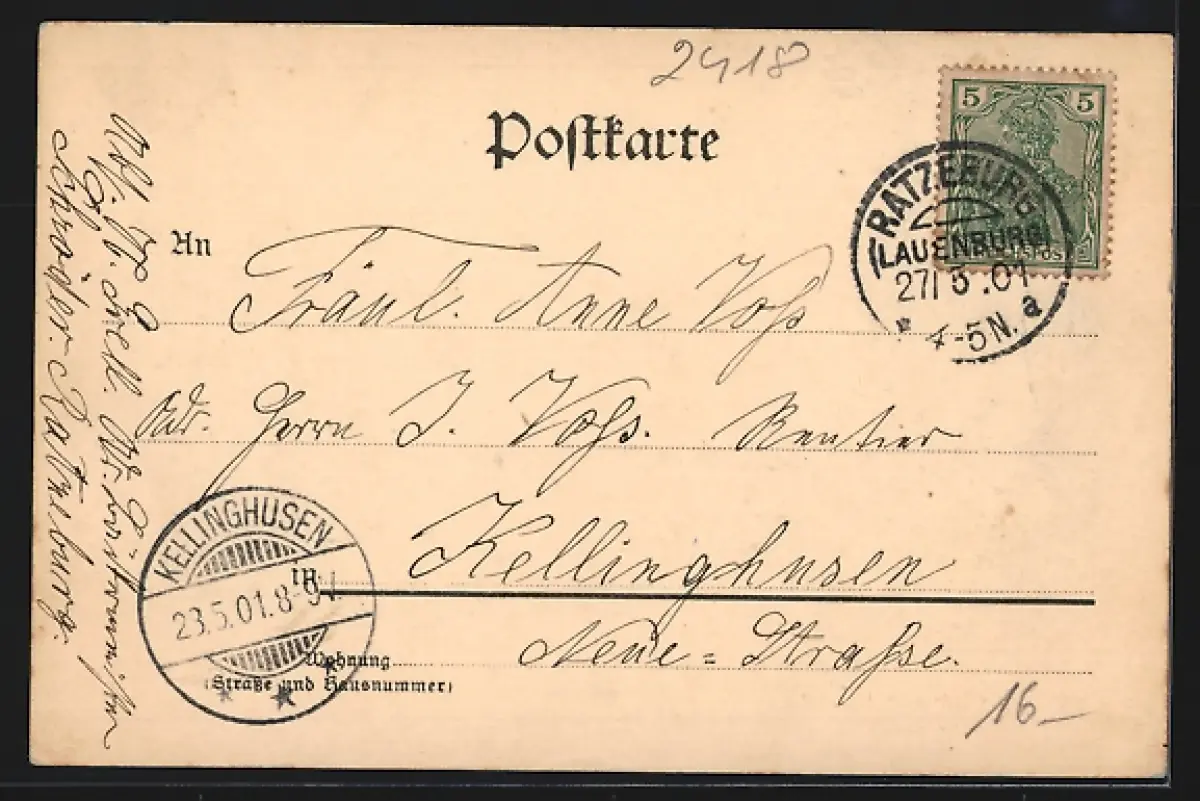 2418
Postkarte
5 5
RATZEBURG
(LAUENBURG)
27/5.01
4-5N. a
An
Fräul. Anne Voß
Adr. Herrn J. Voß. Rentier
in Kellinghusen
Wohnung
(Straße und Hausnummer)
Neue-Straße.
16-
KELLINGHUSEN
23.5.01.8-9V.
Schröder. Ratzeburg.